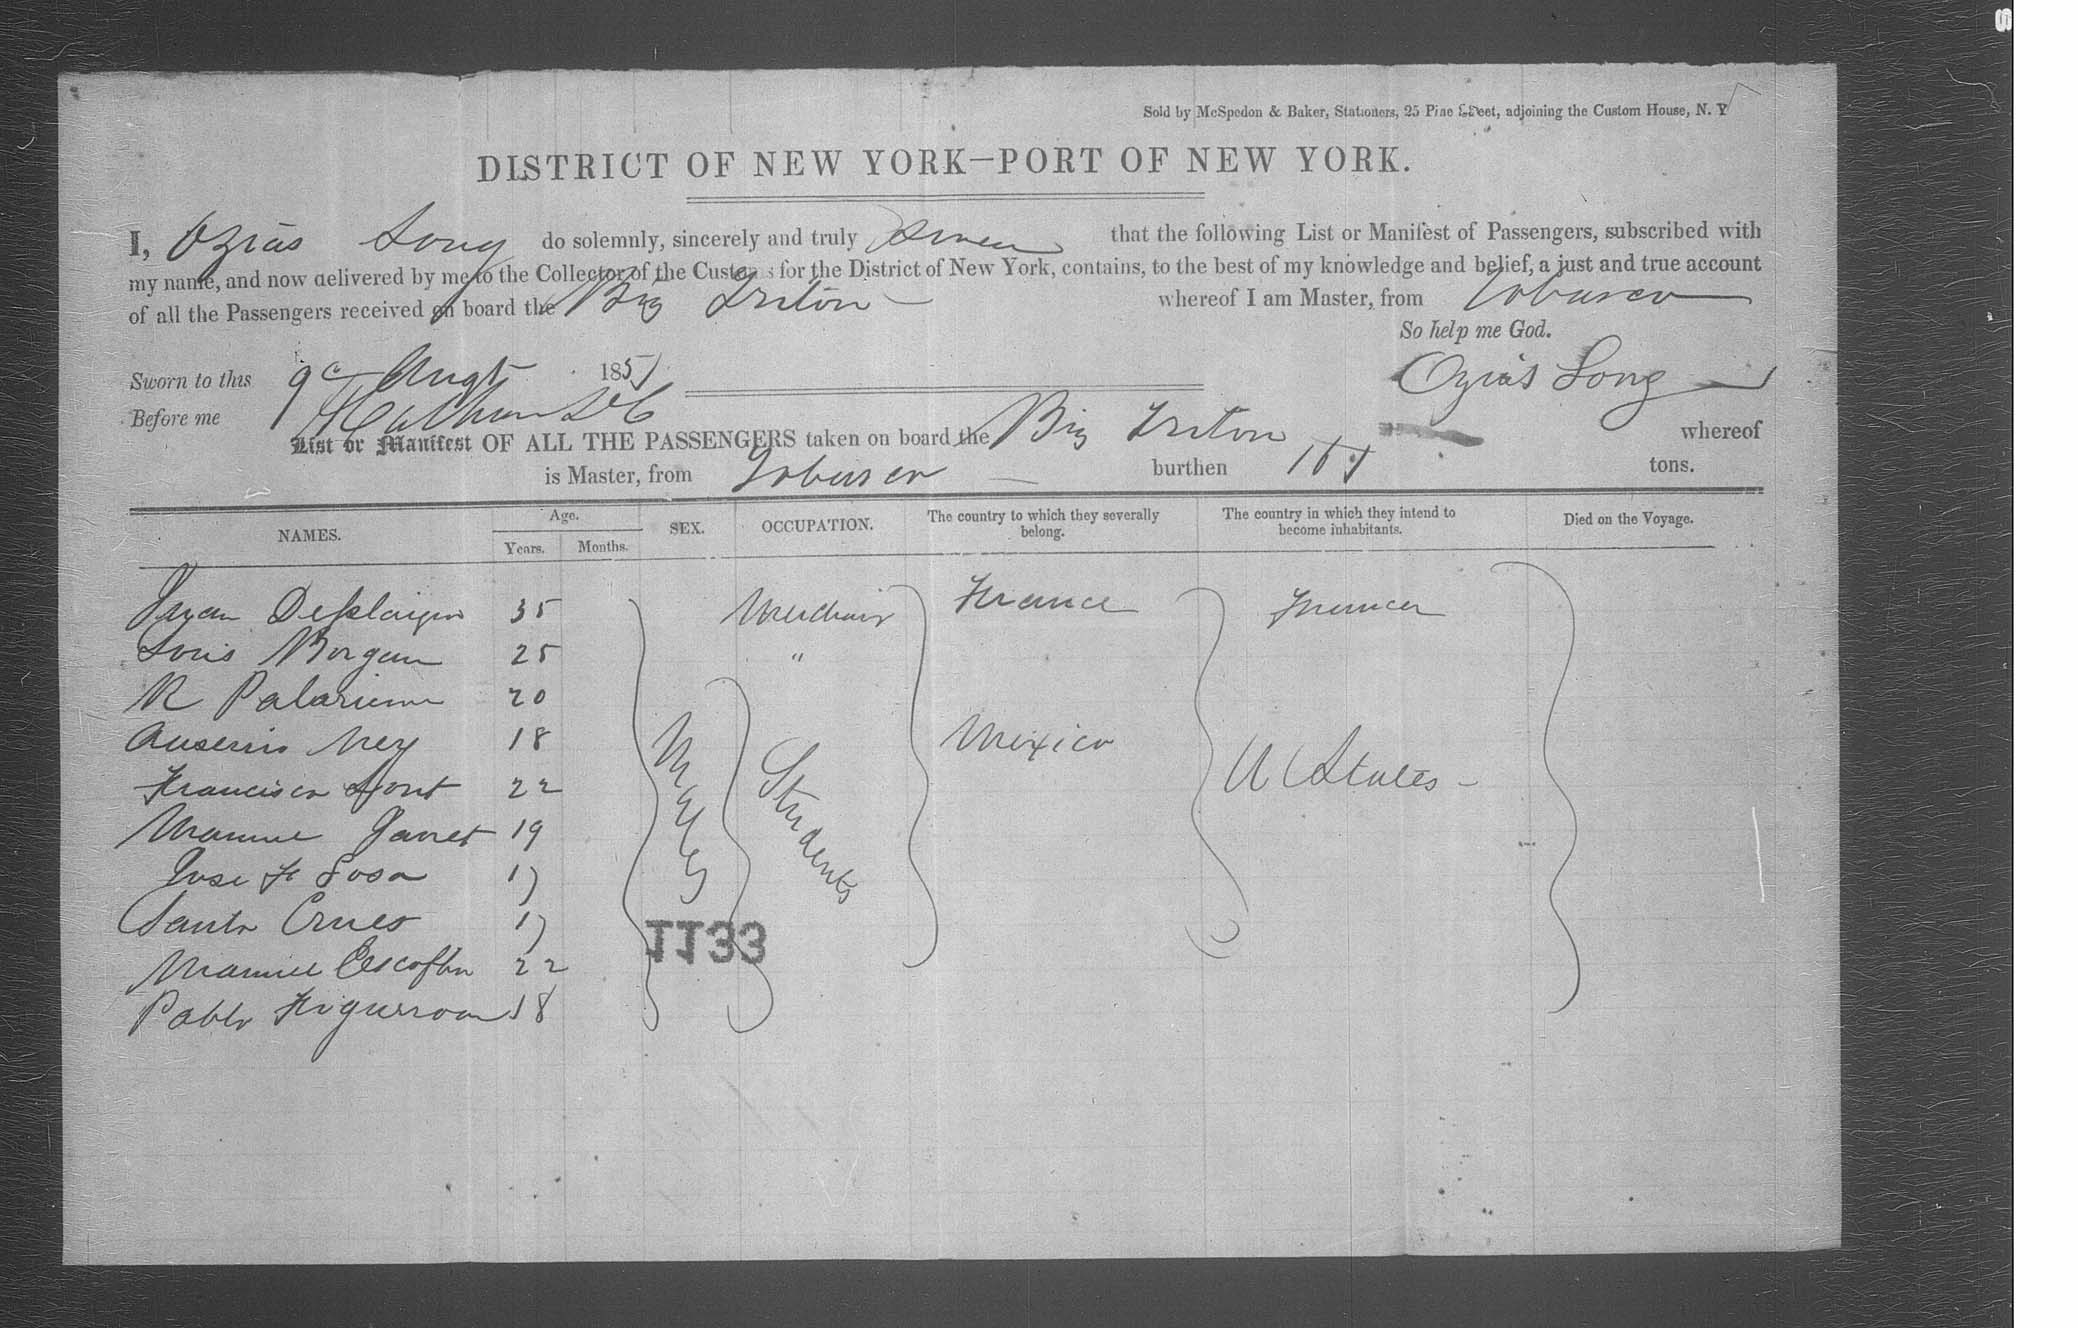 Sold by McSpedon & Baker, Stationers, 25 Pine Street, adjoining the Custom House, N. Y
DISTRICT OF NEW YORK—PORT OF NEW YORK.
I, Ozias Long do solemnly, sincerely and truly swear that the following List or Manifest of Passengers, subscribed with
my name, and now delivered by me to the Collector of the Customs for the District of New York, contains, to the best of my knowledge and belief, a just and true account
of all the Passengers received on board the Brig Triton whereof I am Master, from Tobasco
So help me God.
Sworn to this 9 Augt 1851
Ozias Long
Before me
List or Manifest OF ALL THE PASSENGERS taken on board the Brig Triton whereof
is Master, from Tobasco burthen tons.
NAMES. Age. Years. Months. SEX. OCCUPATION. The country to which they severally belong. The country in which they intend to become inhabitants. Died on the Voyage.
Juan 35 France France
Louis Morgan 25 "
R 20
18 Mexico
Francisco Font 22 U States
Manuel Jannet 19
Jose F Sosa 17
Santo Crues 17
Manuel 22
Pablo 18
Males
Students
1133